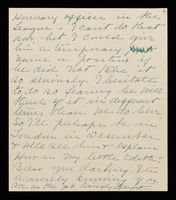 Honorary officer in the
League - I cant do that
now, but I could give
him a temporary
name & position if
he did not take it
so seriously. I hesitate
to do so fearing he will
think of it in different
terms than we do here.
So I'll perhaps be in
London in December
& will see him & explain.
How is my little
Bless you darling I'm
sending you